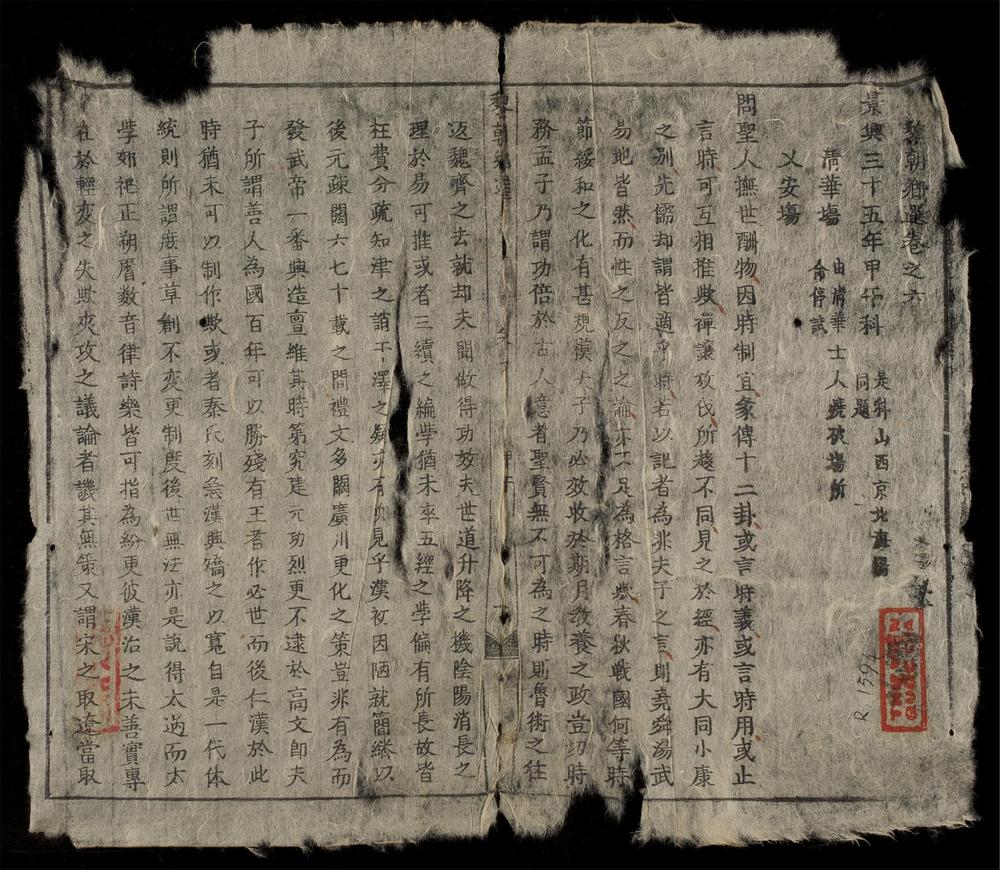 黎朝鄉選卷之六
景興三十五年甲午科 是科山西京北海陽同題
清華場 由清華士人燒破場所命停試
乂安場
問聖人撫世酬物因時制宜彖傳十二卦或言時義或言時用或止
言時可互相推歟禪讓攻伐所趍不同見之於經亦有大同小康
之別先儒却謂皆適乎時若以記者為非夫子之言則堯舜湯武
易地皆然而性之反之之論亦不足為格言歟春秋戰國何等時
節綏和之化有甚規模夫子乃必效收於期月教養之政豈切時
務孟子乃謂功倍於古人意者聖賢無不可為之時則魯衛之往
返魏齊之去就却夫聞做得功效夫世道升降之機陰陽消長之
理於易可推或者三續之編學猶未率五經之學偏有所長故皆
枉費分疏知津之誚干澤之疑亦有所見乎漢初因陋就簡綿以
後元疎闊六七十載之間禮文多闕廣川更化之策豈非有為而
發武帝一番興造亶維其時第究建元功烈更不逮於高文即夫
子所謂善人為國百年可以勝殘有王者作必世而後仁漢於此
時猶未可以制作歟或者秦氏刻急漢興矯之以寬自是一代体
統則所謂庶事草創不変更制度後世無法亦是說得太過而太
學郊祀正朔曆数音律詩樂皆可指為紛更彼漢治之未善實專
在於輕変之失歟夾攻之議論者譏其無策又謂宋之取遼當取
R.1594